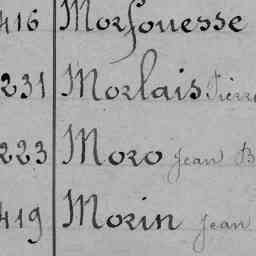 416 Morfouesse
231 Morlais Pierre
223 Moro Jean B
419 Morin Jean